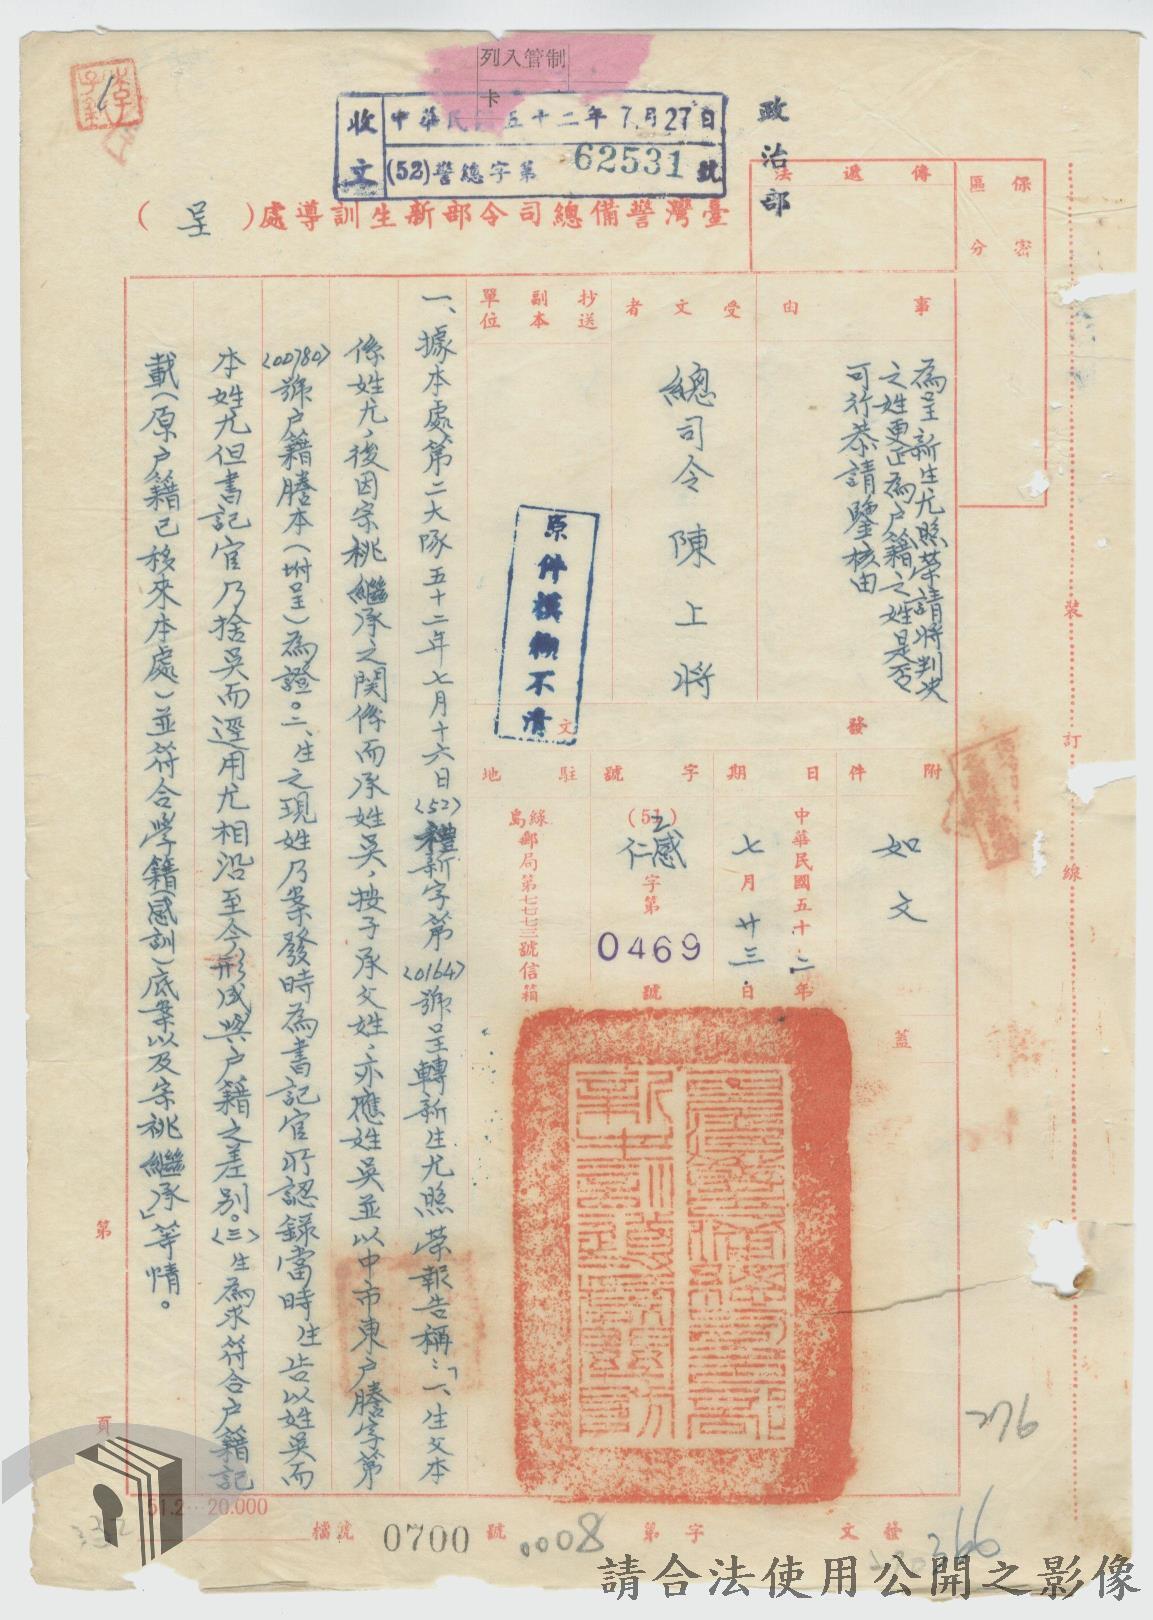 列入管制
卡
收文
中華民國五十二年7月27日
(52)警總字第62531號
政治部
臺灣警備總司令部新生訓導處(呈)
傳遞法
保密區分
事由
為呈新生尤照榮請將判決
之姓更正為戶籍之姓是否
可行恭請鑒核由
受文者
總司令陳上將
抄送副本單位
原件模糊不清
發文
附件
如文
日期
中華民國五十二年
七月廿三日
字號
(52)感仁字第
0469
號
駐地
綠島郵局第七七七三號信箱
蓋
一、據本處第二大隊五十二年七月十六日(52)禮新字第(0164)號呈轉新生尤照榮報告稱:「一、生父本
係姓尤,後因宗桃繼承之関係而承姓吳,按子承父姓,亦應姓吳並以中市東戶謄字第
(00780)號戶籍謄本(附呈)為證。二、生之現姓乃案發時為書記官所認錄當時生告以姓吳而
本姓尤但書記官乃捨吳而逕用尤相沿至今形成與戶籍之差別。(三)生為求符合戶籍記
載(原戶籍已移來本處)並符合學籍(感訓)底案以及宗桃繼承」等情。
裝
訂
線
第
頁
51.2 20.000
檔號 0700 號
0008
第 字
文 發
276
366
請合法使用公開之影像